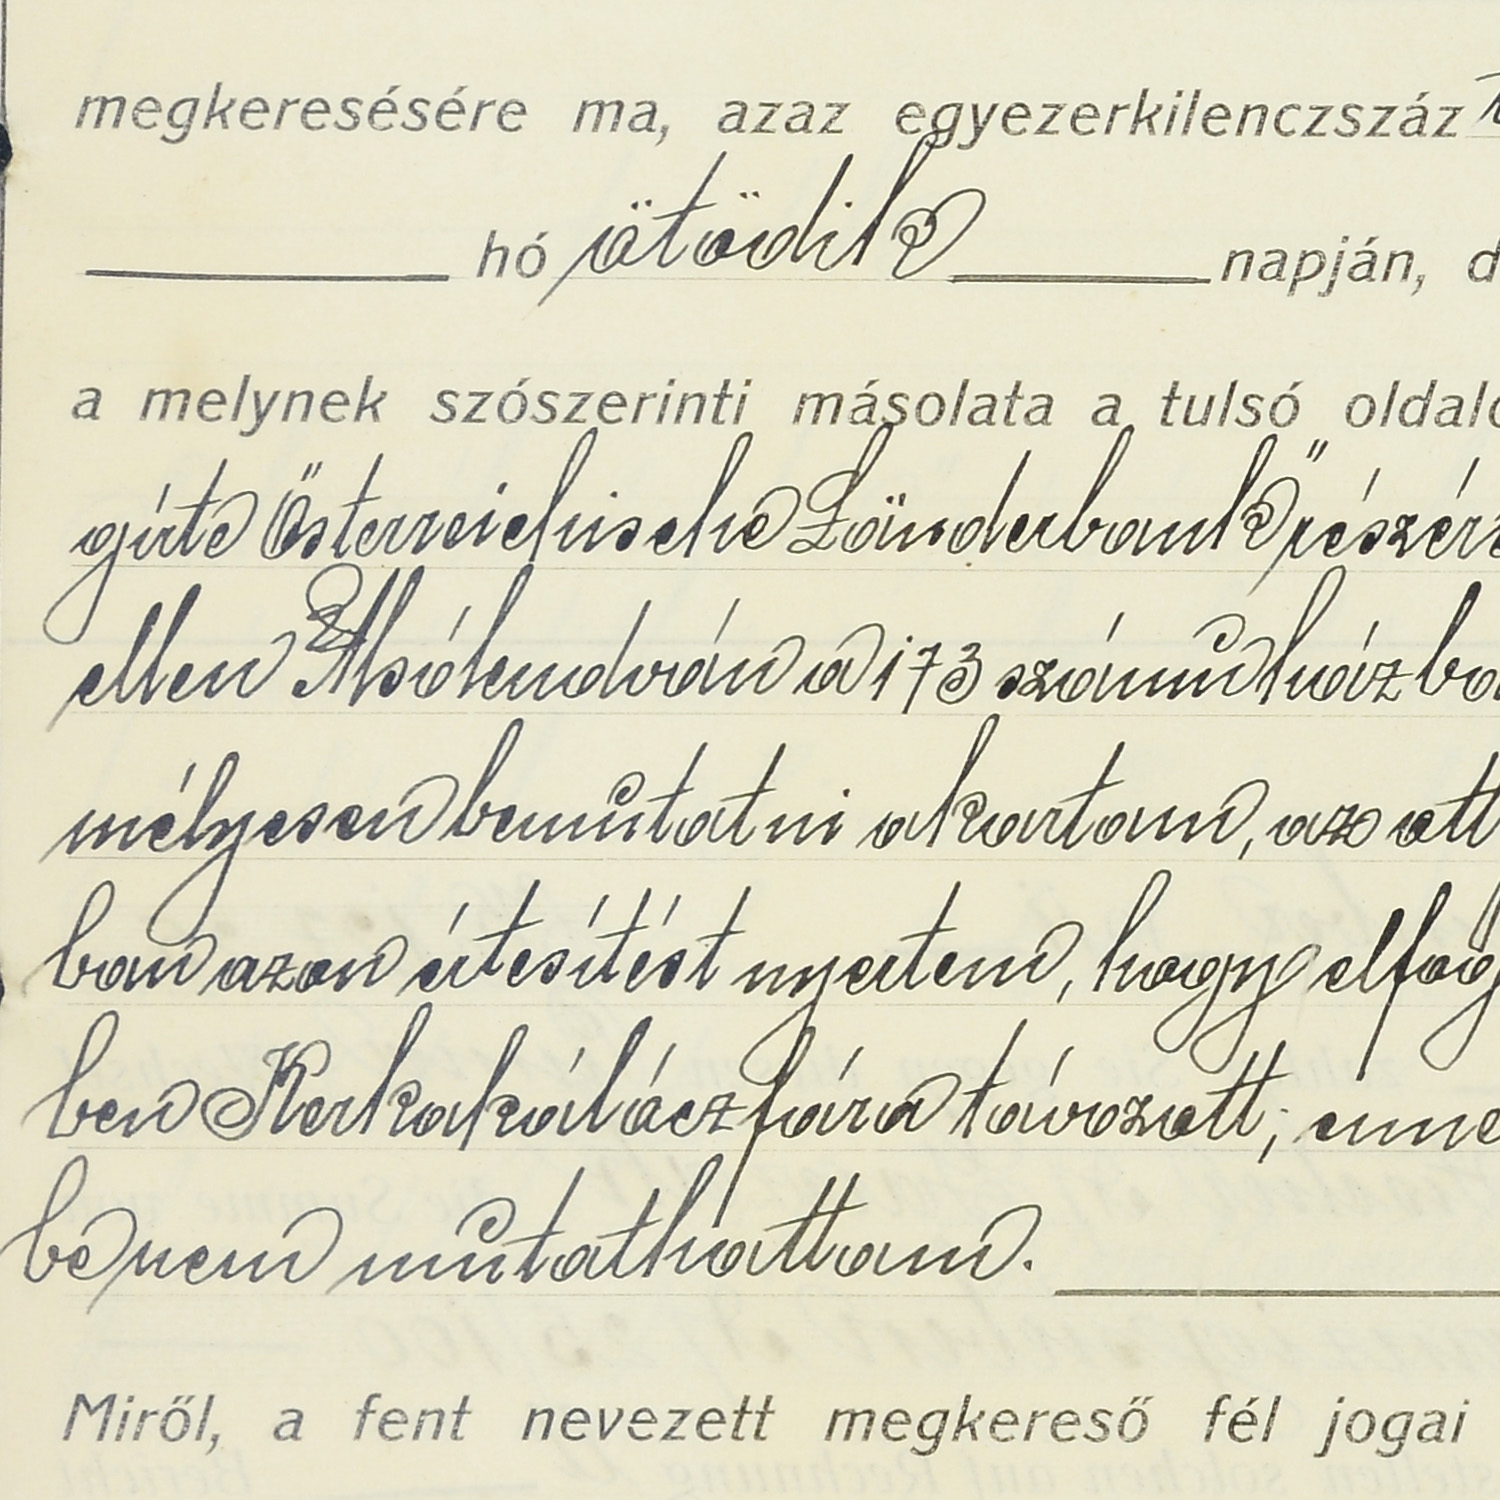 megkeresésére ma, azaz egyezerkilenczszáz
hó ötödik napján, d
a melynek szószerinti másolata a tulsó oldalo
girte Österreichische Länderbank" részére
ellen Alsólendván a 173 számu házba
mélyesen bemutatni akartam, az ott
ban azon értesítést nyertem, hogy elfog
ben Kerkakálóczfára távozott; enne
be nem mutathattam.
Miről, a fent nevezett megkereső fél jogai